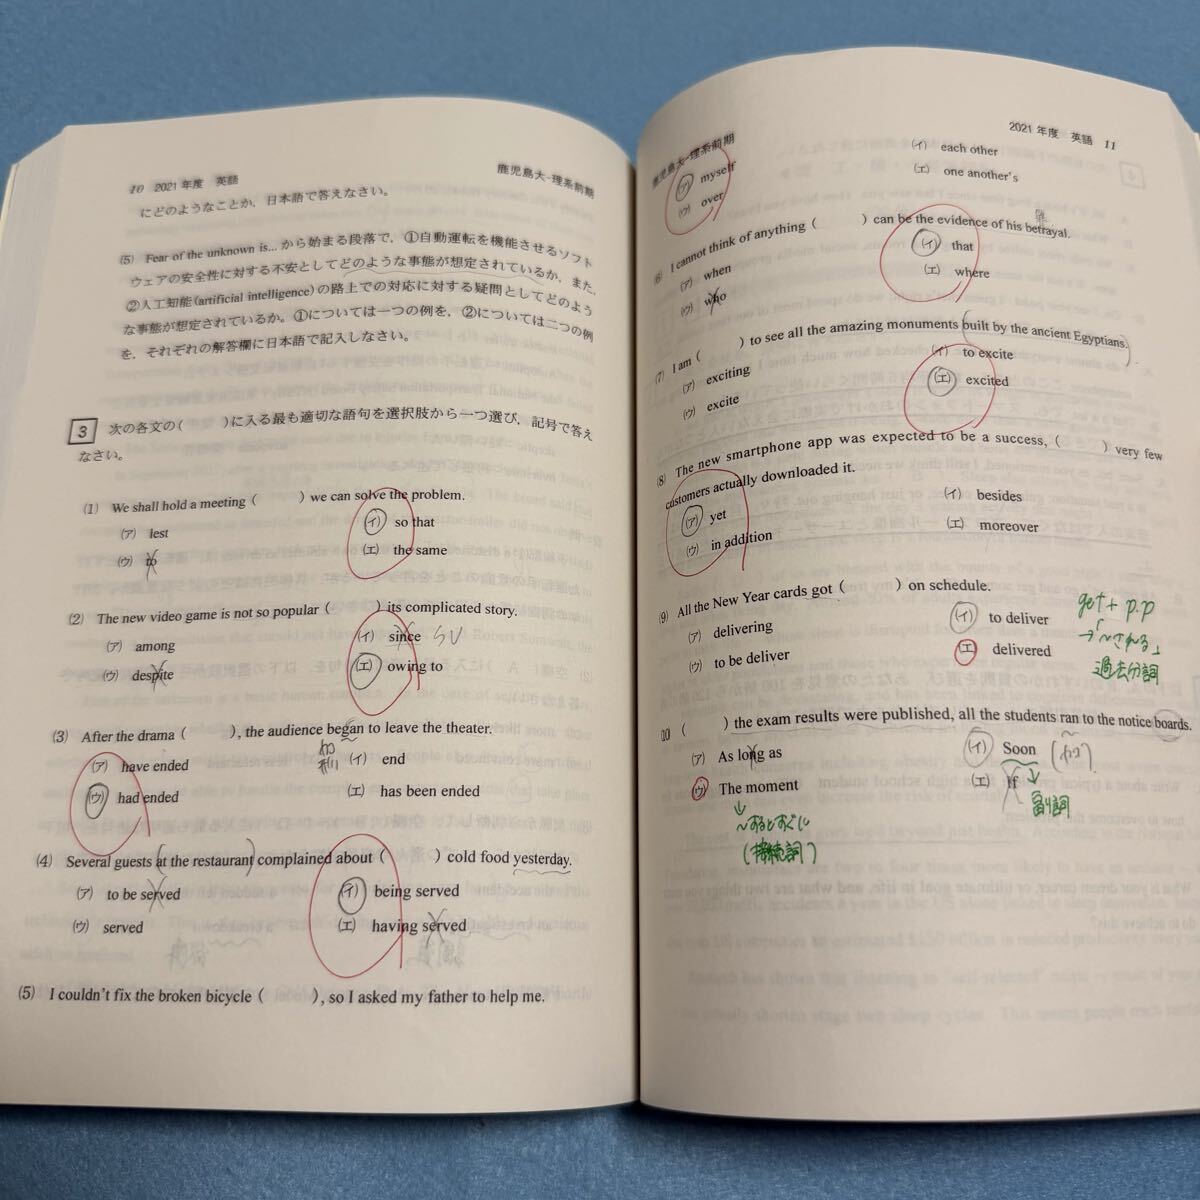 10 2021年度 英語
鹿児島大-理系前期
にどのようなことか、日本語で答えなさい。
(5) Fear of the unknown is... から始まる段落で、①自動運転を機能させるソフト
ウェアの安全性に対する不安としてどのような事態が想定されているか、また、
②人工知能(artificial intelligence)の路上での対応に対する疑問としてどのよう
な事態が想定されているか。①については一つの例を、②については二つの例
を、それぞれの解答欄に日本語で記入しなさい。
3 次の各文の( )に入る最も適切な語句を選択肢から一つ選び、記号で答え
なさい。
(1) We shall hold a meeting ( ) we can solve the problem.
(ア) lest
(イ) so that
(ウ) to
(エ) the same
(2) The new video game is not so popular ( ) its complicated story.
(ア) among
(イ) since
(ウ) despite
(エ) owing to
(3) After the drama ( ), the audience began to leave the theater.
(ア) have ended
(イ) end
(ウ) had ended
(エ) has been ended
(4) Several guests (at the restaurant) complained about ( ) cold food yesterday.
(ア) to be served
(イ) being served
(ウ) served
(エ) having served
(5) I couldn't fix the broken bicycle ( ), so I asked my father to help me.
鹿児島大-理系前期
2021年度 英語 11
(ア) myself
(イ) each other
(ウ) over
(エ) one another's
(6) I cannot think of anything ( ) can be the evidence of his betrayal.
(ア) when
(イ) that
(ウ) who
(エ) where
(7) I am ( ) to see all the amazing monuments (built by the ancient Egyptians.)
(ア) exciting
(イ) to excite
(ウ) excite
(エ) excited
(8) The new smartphone app was expected to be a success, ( ) very few
customers actually downloaded it.
(ア) yet
(イ) besides
(ウ) in addition
(エ) moreover
(9) All the New Year cards got ( ) on schedule.
(ア) delivering
(イ) to deliver
(ウ) to be deliver
(エ) delivered
get + p.p
→ ～される
過去分詞
(10) ( ) the exam results were published, all the students ran to the notice boards.
(ア) As long as
(イ) Soon
(ウ) The moment
(エ) If
↓
～するとすぐに
(接続詞)
↓
副詞